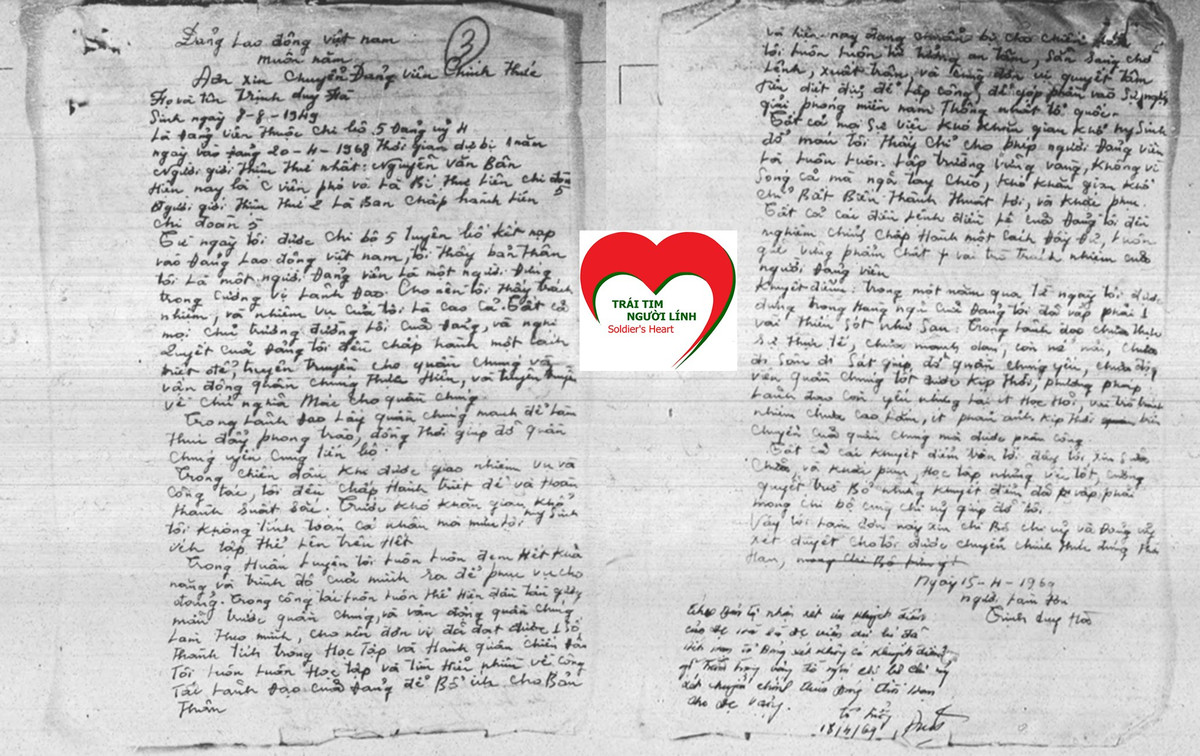 Đảng Lao động Việt nam
muôn năm
3
Đơn xin Chuyển Đảng viên Chính thức
Họ và tên Trịnh duy Hà
Sinh ngày 8-8-1949
Là Đảng viên thuộc chi bộ 5 Đảng uỷ 4
ngày vào Đảng 20-4-1968 Thời gian dự bị 1 năm
Người giới thiệu thứ nhất: Nguyễn Văn Bân
Hiện nay là C viên phó và là Bí thư liên chi đoàn 5
Người giới thiệu thứ 2 là Ban chấp hành liên
chi đoàn 5
Từ ngày tôi được chi bộ 5 tuyên bố kết nạp
vào Đảng Lao động việt nam, tôi thấy bản thân
tôi là một người Đảng viên là một người đứng
trong cương vị lãnh đạo. Cho nên tôi thấy trách
nhiệm, và nhiệm vụ của tôi là cao cả. Tất cả
mọi chủ trương đường lối của Đảng, và nghị
quyết của Đảng tôi đều chấp hành một cách
triệt để, truyên truyền cho quần chúng và
vận động quần chúng thực hiện, và truyên truyền
về chủ nghĩa Mác cho quần chúng.
Trong lãnh đạo lấy quần chúng mạnh để làm
thúc đẩy phong trào, đồng thời giúp đỡ quần
chúng yếu cùng tiến bộ.
Trong chiến đấu khi được giao nhiệm vụ và
công tác, tôi đều chấp hành triệt để và hoàn
thành suất sắc. Trước khó khăn gian khổ hy sinh
tôi không tính toán cá nhân mà
tập thể lên trên hết
Trong huấn luyện tôi luôn luôn đem hết khả
năng và trình độ của mình ra để phục vụ cho
Đảng. Trong công tác luôn luôn thể hiện dẫn đầu gương
mẫu trước quần chúng, và vận động quần chúng
làm theo mình, cho nên đơn vị đã đạt được 1 số
thành tích trong học tập và hành quân chiến đấu
Tôi luôn luôn học tập và tìm hiểu thêm về công
tác lãnh đạo của Đảng để bổ ích cho bản
thân
và hiện nay đang chuẩn bị cho chiến
tôi luôn luôn tư tưởng an tâm, sẵn sàng chờ
lệnh, xuất trận, và cùng đơn vị quyết tâm
tiêu diệt địch để lập công, để góp phần vào sự nghiệp
giải phóng miền nam thống nhất tổ quốc.
Tất cả mọi sự việc khó khăn gian khổ hy sinh
đổ máu tôi thấy chỉ cho phép người Đảng viên
là luôn luôn lập trường vững vàng, không vì
sóng cả mà ngã tay chèo, khó khăn gian khổ
chỉ bất biến thành thuật lợi, và khắc phục.
Tất cả các điều lệnh điều lệ của Đảng tôi đều
nghiêm chỉnh chấp hành một cách đầy đủ, luôn
giữ vững phẩm chất và vai trò trách nhiệm của
người Đảng viên
Khuyết điểm. Trong một năm qua từ ngày tôi được
đứng trong hàng ngũ của Đảng tôi đã vấp phải 1
vài thiếu sót như sau: Trong lãnh đạo chưa thực
sự thực tế, chưa mạnh dạn, còn nể nải, chưa
đi sâu đi sát giúp đỡ quần chúng yếu, chưa động
viên quần chúng tốt được kịp thời, phương pháp
lãnh đạo còn yếu nhưng lại ít học hỏi, vai trò trách
nhiệm chưa cao lắm, ít phản ánh kịp thời
chuyển của quần chúng mà được phân công.
Tất cả các khuyết điểm trên tôi đây tôi xin sửa
chữa, và khắc phục học tập những cái tốt, cương
quyết trừ bỏ những khuyết điểm đã vấp phải
mong chi bộ cùng chi uỷ giúp đỡ tôi.
Vậy tôi làm đơn này xin chi bộ chi uỷ và Đảng uỷ
xét duyệt cho tôi được chuyển chính thức đúng thời
hạn,
Ngày 15-4-1969
người làm đơn
Trịnh duy Hà
nhận xét ưu khuyết điểm
không có khuyết điểm
gì trầm trọng vậy đề nghị chi bộ chi uỷ
xét chuyển chính thức đúng thời hạn
cho
tổ trưởng
18/4/69
TRÁI TIM
NGƯỜI LÍNH
Soldier's Heart